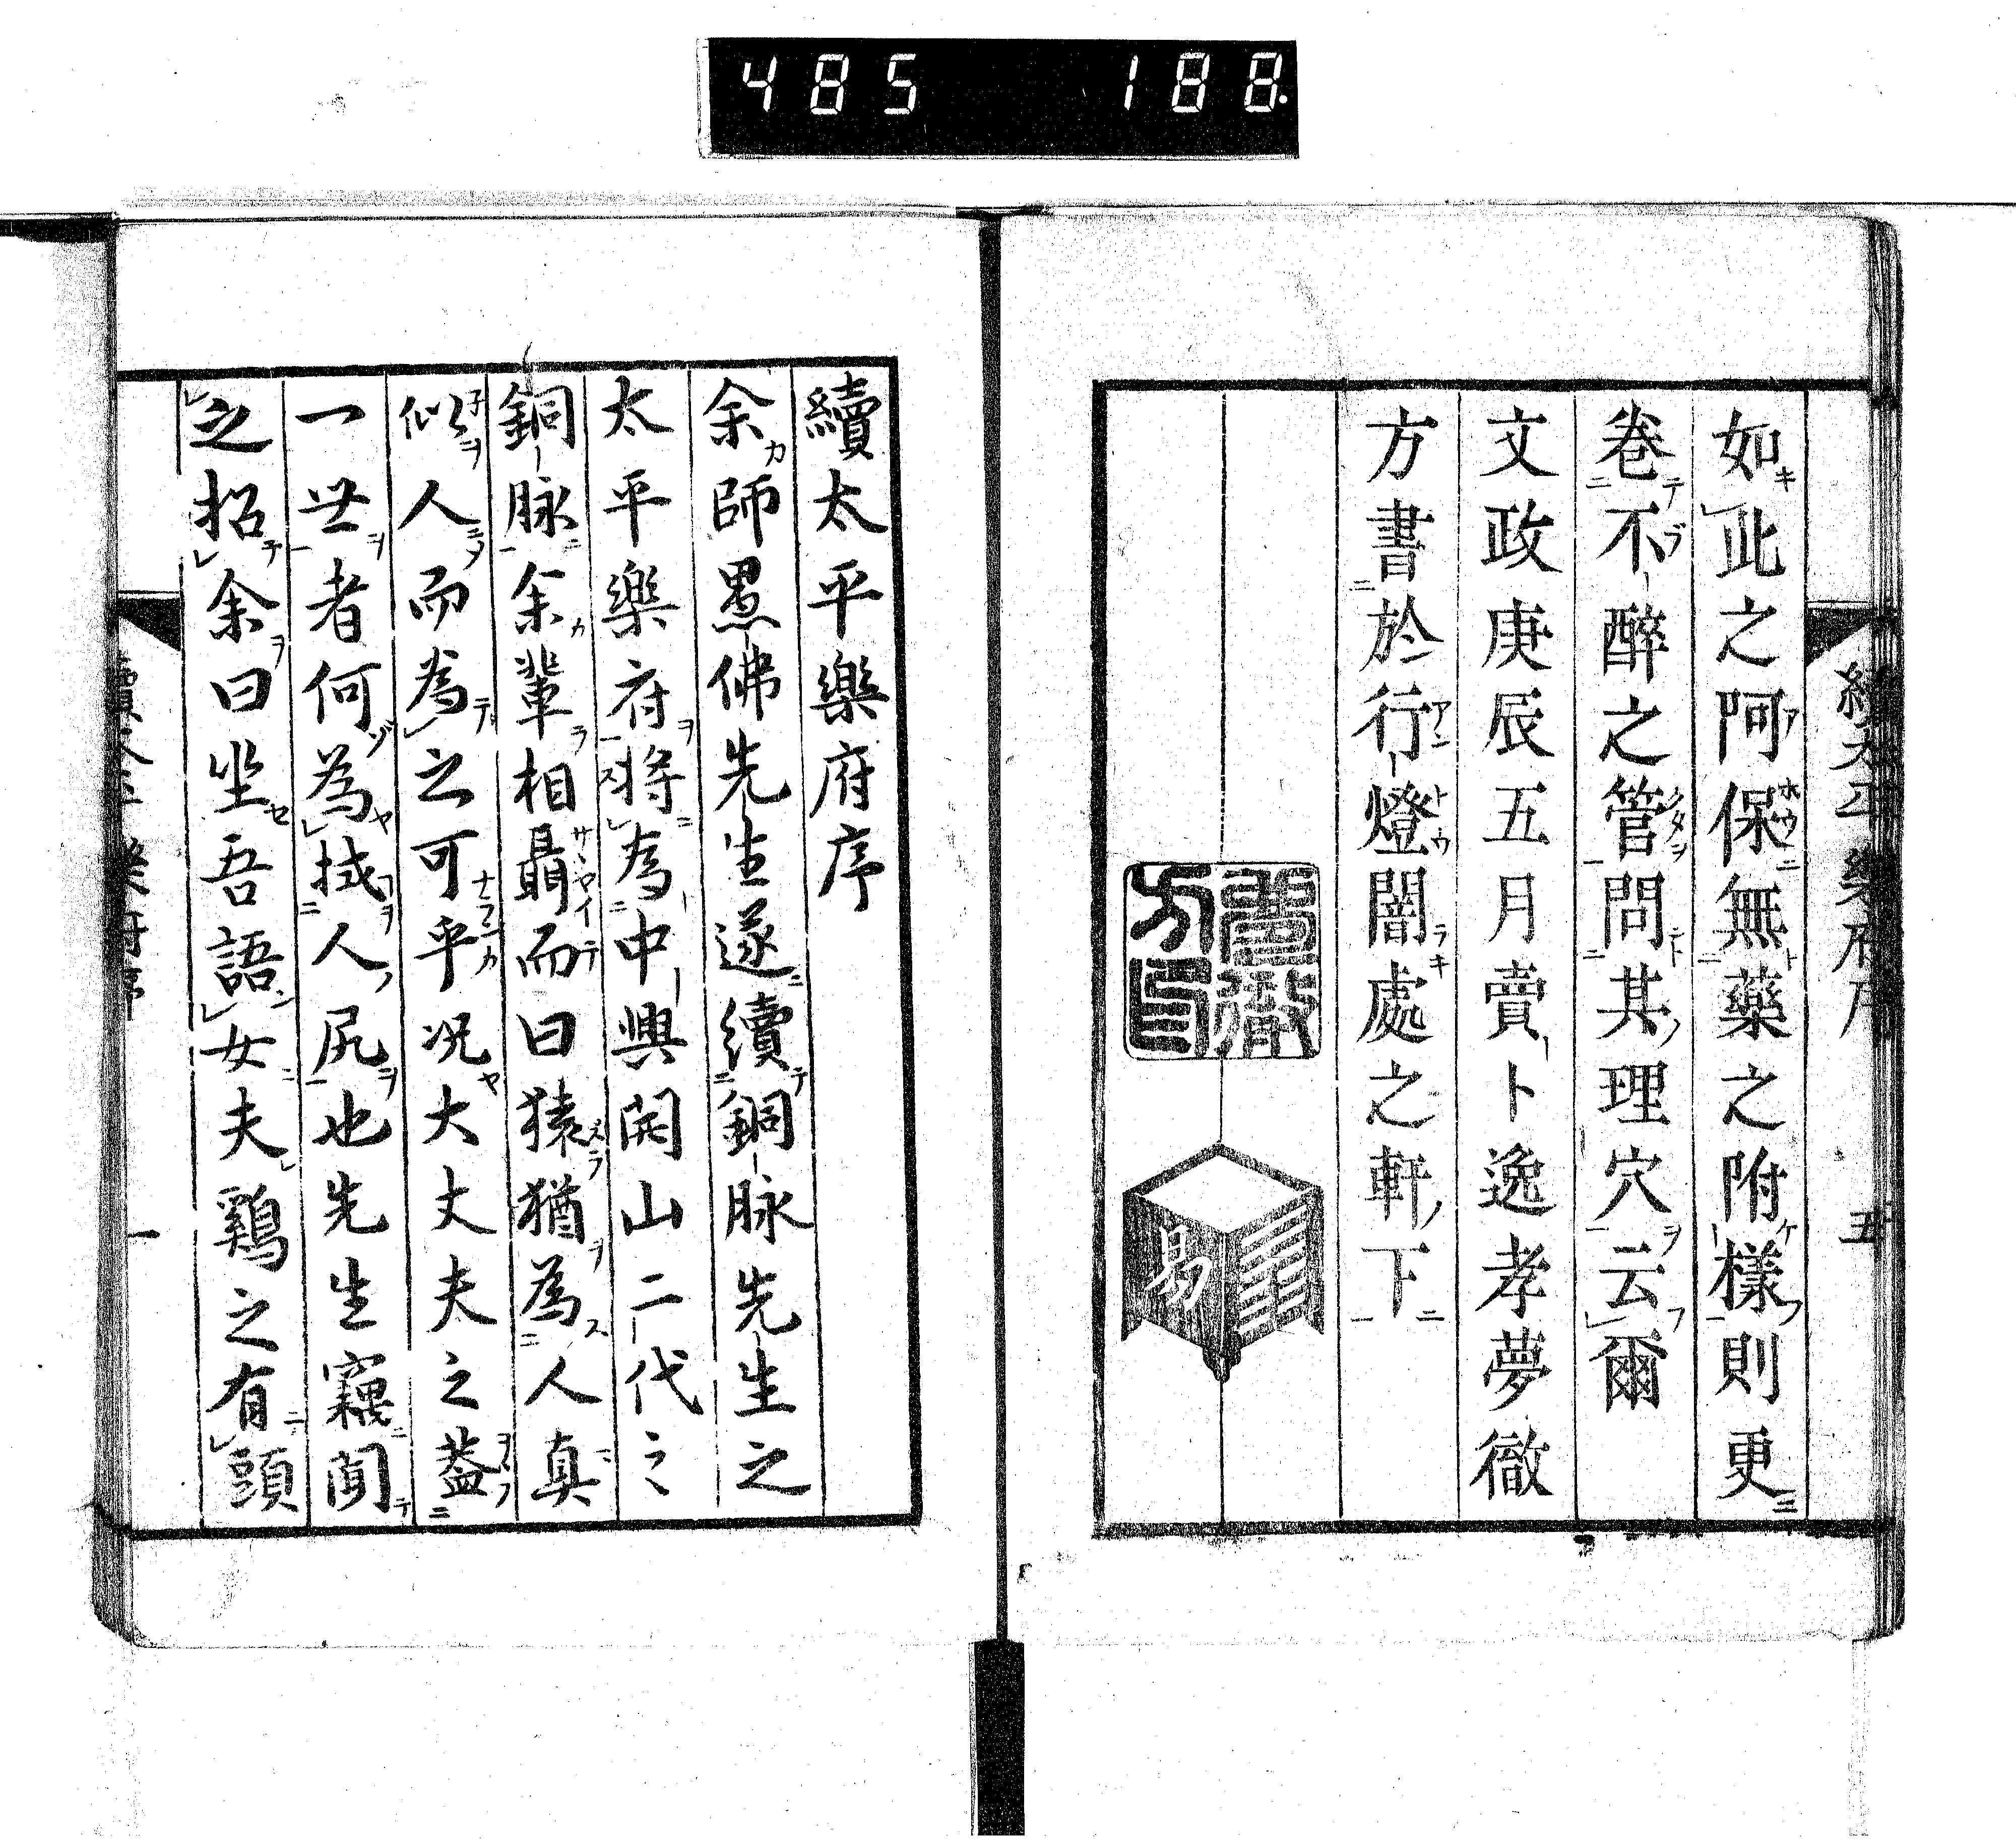 485 188.
續太平樂府序 五
如此之阿保無藥之附樣則更
卷不醉之管問其理穴云爾
文政庚辰五月賣卜逸孝夢徹
方書於行燈闇處之軒下
易
續太平樂府序
余師愚佛先生遂續銅脉先生之
太平樂府將為中興開山二代之
銅脉余輩相聶而曰猿猶為人真
似人而為之可乎况大丈夫之蓋
一世者何為拭人尻也先生竊聞
之招余曰坐吾語女夫鷄之有頭
續太平樂府序 一